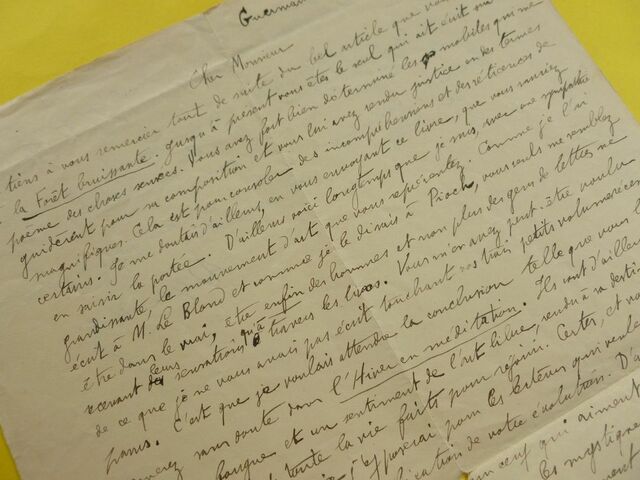 Guerman
Cher Monsieur
tiens à vous remercier tout de suite du bel article que vous
la Forêt bruissante. Jusqu'à présent vous êtes le seul qui ait écrit sur
poème des choses sensées. Vous avez fort bien déterminé les mobiles qui me
guidèrent pour sa composition et vous lui avez rendu justice en des termes
magnifiques. Cela est pour consoler des incompréhensions et des réticences de
certains. Je me doutais d'ailleurs, en vous envoyant ce livre, que vous sauriez
en saisir la portée. D'ailleurs voici longtemps que je suis, avec une sympathie
grandissante, le mouvement d'art que vous représentez. Comme je l'ai
écrit à M. Le Blond et comme je le disais à Pioch, vous seuls me semblez
être dans le vrai, être enfin des hommes et non plus des gens de lettres ne
recevant leurs sensations qu'à travers les livres. Vous m'en avez peut-être voulu
de ce que je ne vous avais pas écrit touchant vos trois petits volumes récem
parus. C'est que je voulais attendre la conclusion telle que vous l
sans doute dans l'Hiver en méditation. Ils sont d'ailleurs
fougue et un sentiment de l'art libre, rendu à sa destin
toute la vie faits pour réjouir. Certes, et
pour les esthètes qui veulent
de votre évolution. D'a
ceux qui aiment
les mystiques